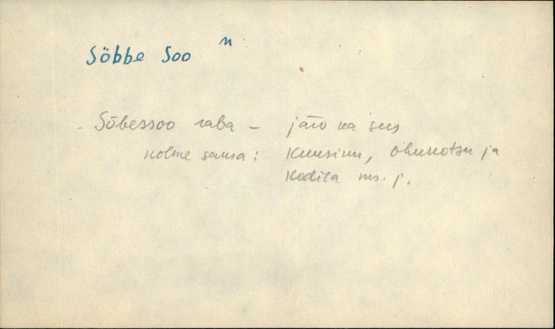 Sõbbe Soo n
Sõbessoo raba – jääb ka siis
kolme sama: Kuusiku, Ohukotsu ja
Kodila ms. j.